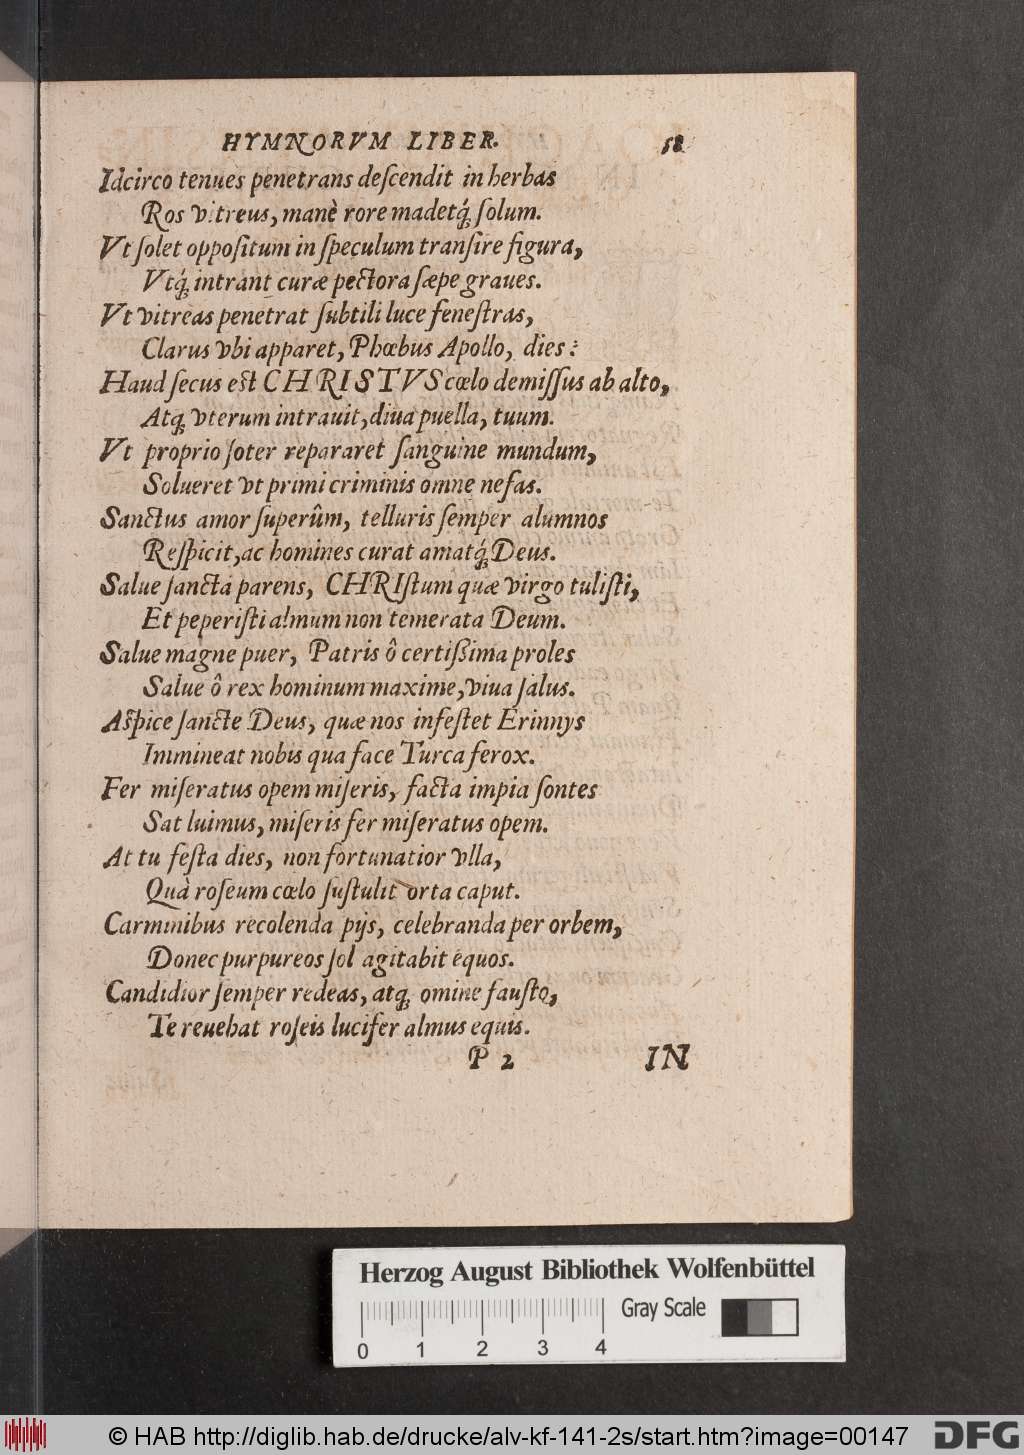 HYMNORVM LIBER. 58
Idcirco tenues penetrans deſcendit in herbas
Ros vitreus, manè rore madetq́; ſolum.
Vt ſolet oppoſitum in ſpeculum tranſire figura,
Vtq́; intrant curæ pectora ſæpe graues.
Vt vitreas penetrat ſubtili luce feneſtras,
Clarus vbi apparet, Phœbus Apollo, dies:
Haud ſecus est CHRISTVS cœlo demiſſus ab alto,
Atq; vterum intrauit, diua puella, tuum.
Vt proprio ſoter repararet ſanguine mundum,
Solueret vt primi criminis omne nefas.
Sanctus amor ſuperûm, telluris ſemper alumnos
Reſpicit, ac homines curat amatq́; Deus.
Salue ſancta parens, CHRIſtum quæ virgo tuliſti,
Et peperiſti almum non temerata Deum.
Salue magne puer, Patris ô certißima proles
Salue ô rex hominum maxime, viua ſalus.
Aſpice ſancte Deus, quæ nos infeſtet Erinnys
Immineat nobis qua face Turca ferox.
Fer miſeratus opem miſeris, facta impia ſontes
Sat luimus, miſeris fer miſeratus opem.
At tu feſta dies, non fortunatior vlla,
Quà roſeum cœlo ſuſtulit orta caput.
Carminibus recolenda pijs, celebranda per orbem,
Donec purpureos ſol agitabit equos.
Candidior ſemper redeas, atq; omine fauſto,
Te reuehat roſeis lucifer almus equis.
P 2 IN
Herzog August Bibliothek Wolfenbüttel
Gray Scale
0 1 2 3 4
© HAB http://diglib.hab.de/drucke/alv-kf-141-2s/start.htm?image=00147 DFG